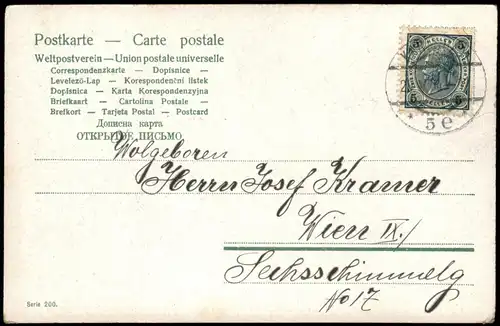 Postkarte — Carte postale
Weltpostverein — Union postale universelle
Correspondenzkarte — Dopisnice —
Levelező-Lap — Korespondenční lístek
Dopisnica — Karta Korespondenzyjna
Briefkaart — Cartolina Postale —
Brefkort — Tarjeta Postal — Postcard
Дописна карта
ОТКРЫТОЕ ПИСЬМО
5 5
KELLER
5 5
* 5e *
Wolgeboren
Herrn Josef Kramer
Wien IX./
Sechsschimmelg
No 17
Serie 200.